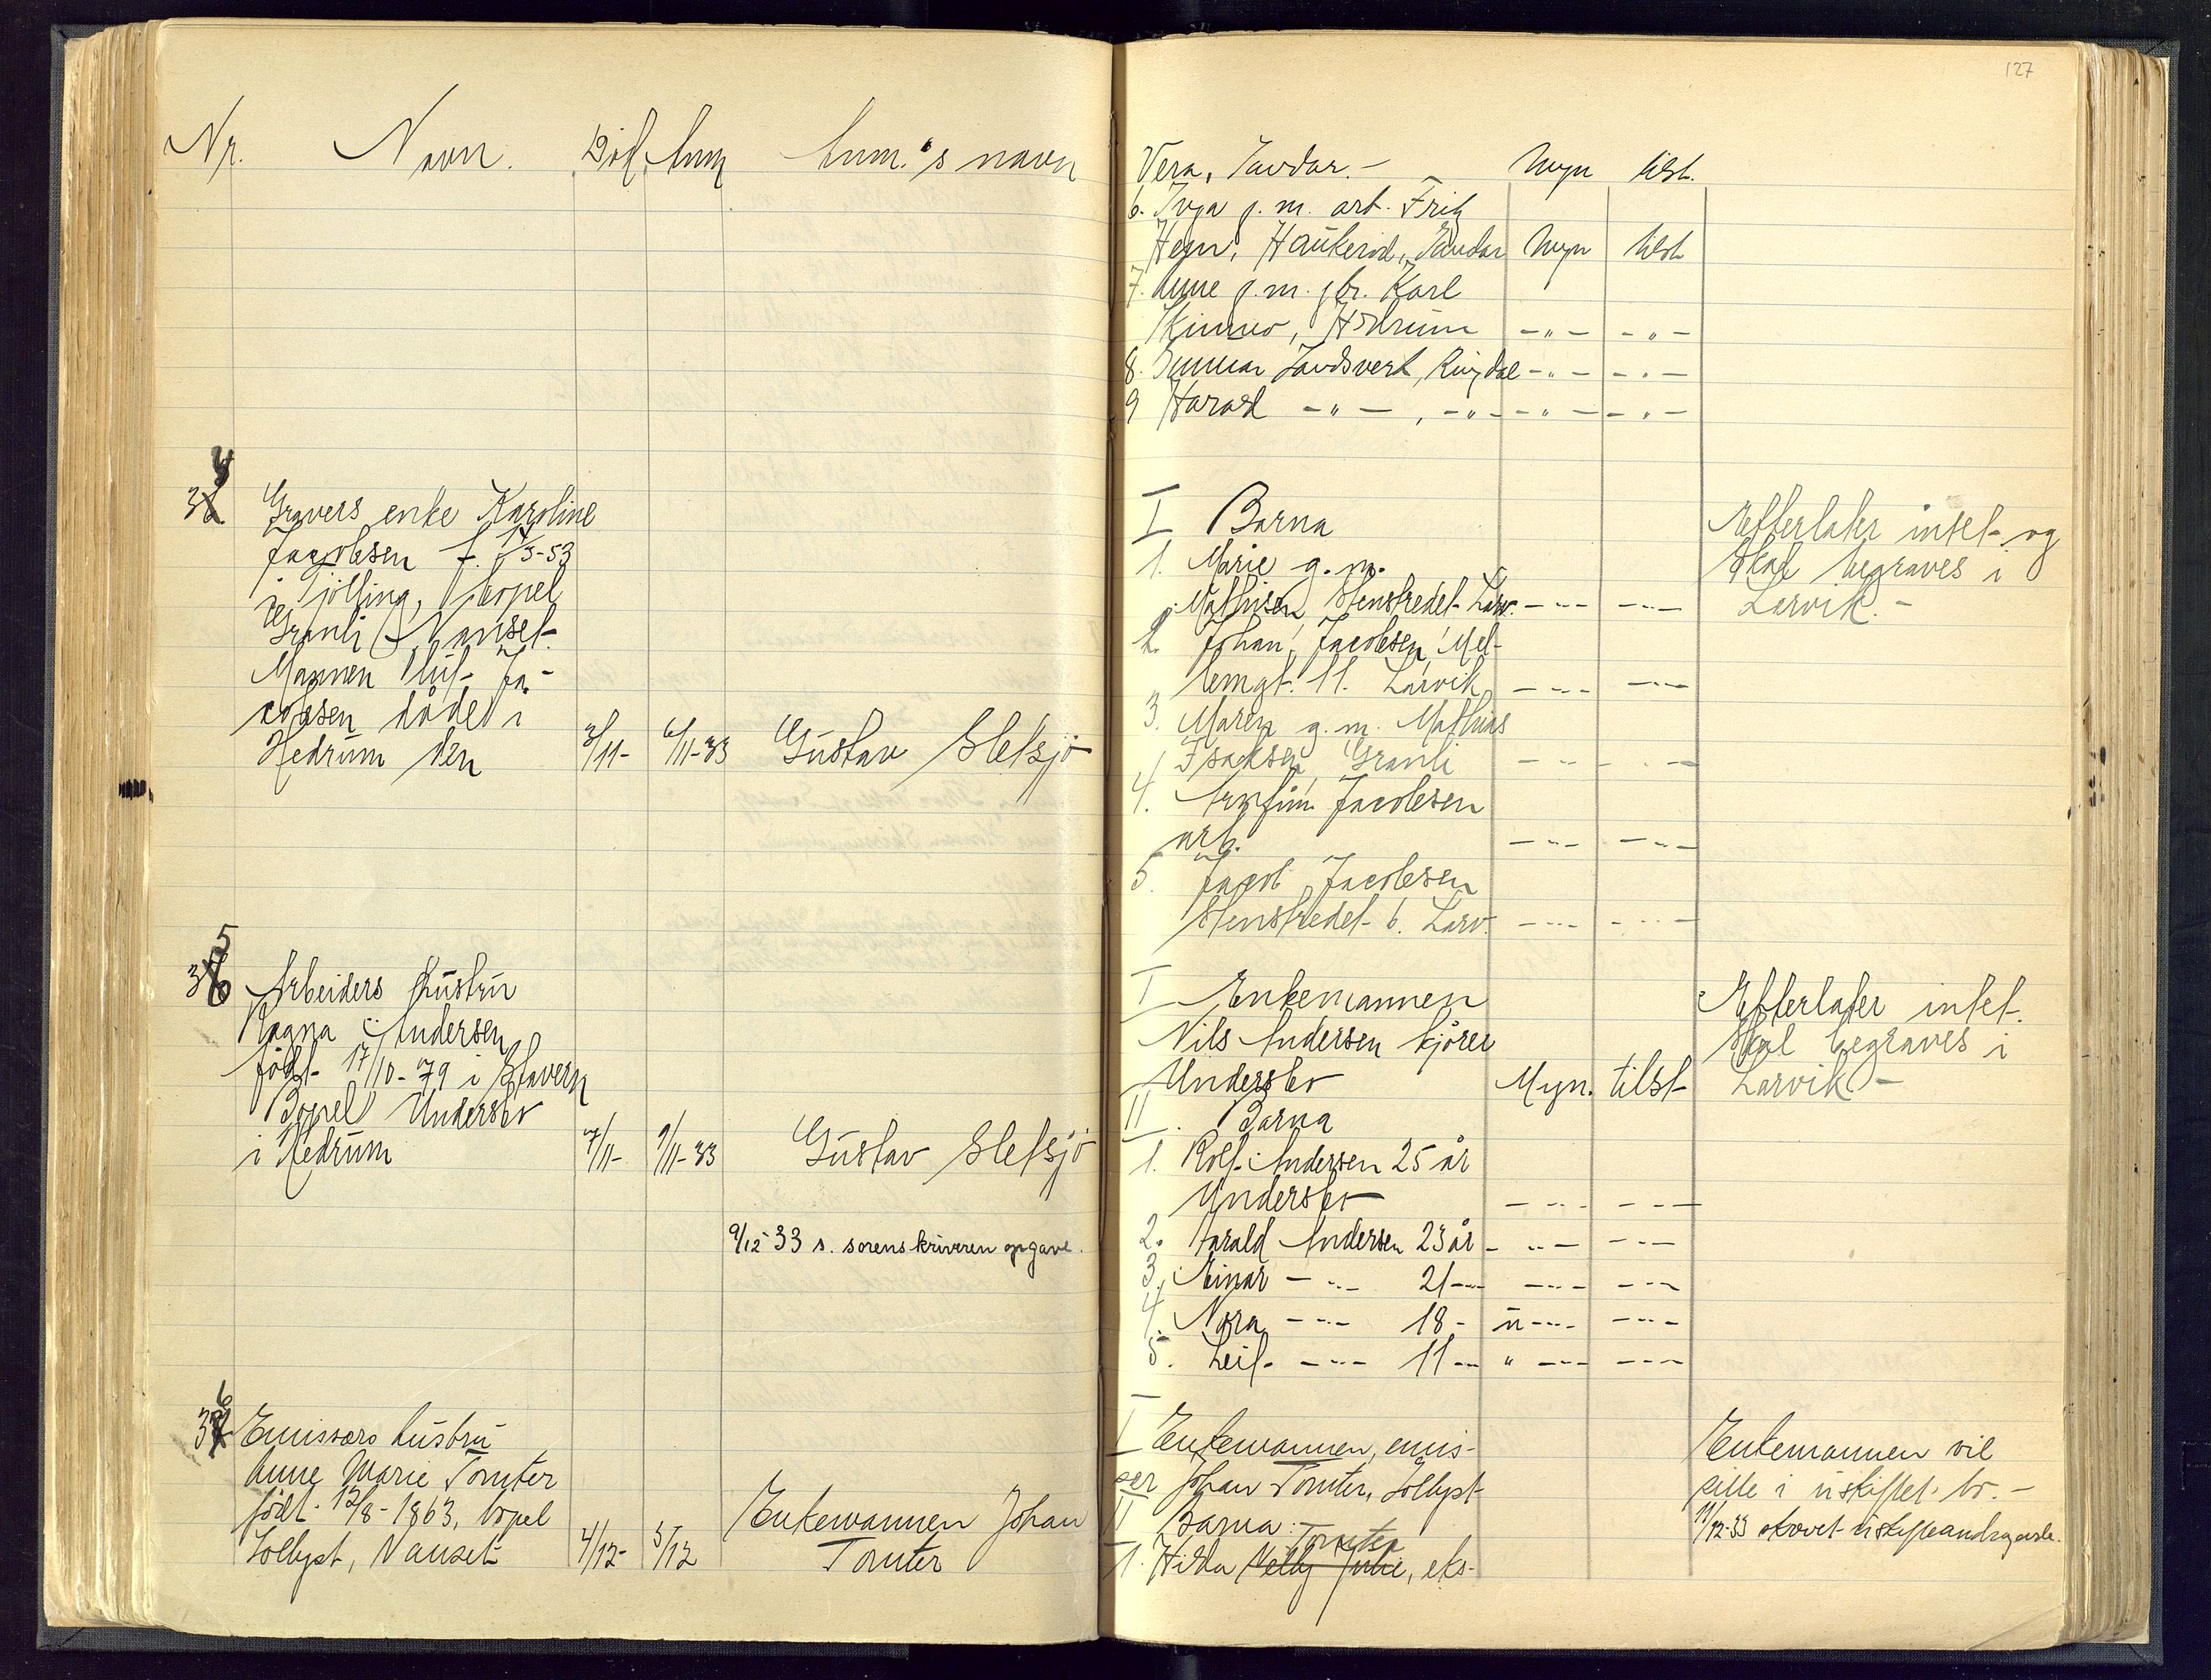 127
Nr. Navn. Død. Anm. Anm.'s navn
Vera, Sandar. - Myn tilst.
6. Inga g. m. arb. Fritz
Hegn, Haukerød, Sandar Myn tilst
7. Anne g. m. gbr. Karl
Kinnes, Hedrum -"- -"-
8. Gunnar Sandsvert, Ringdal -"- -"-
9 Harald -"-, -"- -"- -"-
34
Gravers enke Karoline
Jacobsen f. 17/3-53
i Tjølling, bopel
Granli, Nanset.
Mannen Oluf Ja-
cobsen døde i
Hedrum den 3/11- 6/11-33 Gustav Sletsjø
I Barna
1. Marie g. m.
Mathisen, Stenstredet Larv. -"- -"-
2. Johan Jacobsen, Mel-
lemgt. 11. Larvik -"- -"-
3. Maren g. m. Mathias
Isaksen, Granli -"- -"-
4. Arnfinn Jacobsen
arb. -"- -"-
5. Jacob Jacobsen
Stenstredet 6. Larv. -"- -"-
Efterlater intet og
skal begraves i
Larvik. -
35
Arbeiders hustru
Ragna Andersen
født 17/10-79 i Stavern
Bopel Undersbo
i Hedrum 7/11- 9/11-33 Gustav Sletsjø
9/12 33 s. sorenskriveren opgave.
I Enkemannen
Nils Andersen kjører
Undersbo Myn. tilst
II. Barna
1. Rolf Andersen 25 år
Undersbo -"- -"-
2. Harald Andersen 23 år -"- -"-
3. Einar -"- 21 -"- -"- -"-
4. Nora -"- 18 - u -"- -"-
5. Leif -"- 11 -"- " -"- -"-
Efterlater intet.
Skal begraves i
Larvik -
36
Emissærs hustru
Anne Marie Tomter
født 12/8-1863, bopel
Solbyst, Nanset 4/12- 5/12 Enkemannen Johan
Tomter
I Enkemannen, emis-
sær Johan Tomter, Solbyst
II Barna:
Tomter
1. Hilda Nelly Julie, eks-
Enkemannen vil
sitte i uskiftet bo. -
11/12-33 skrevet uskifteandragende.